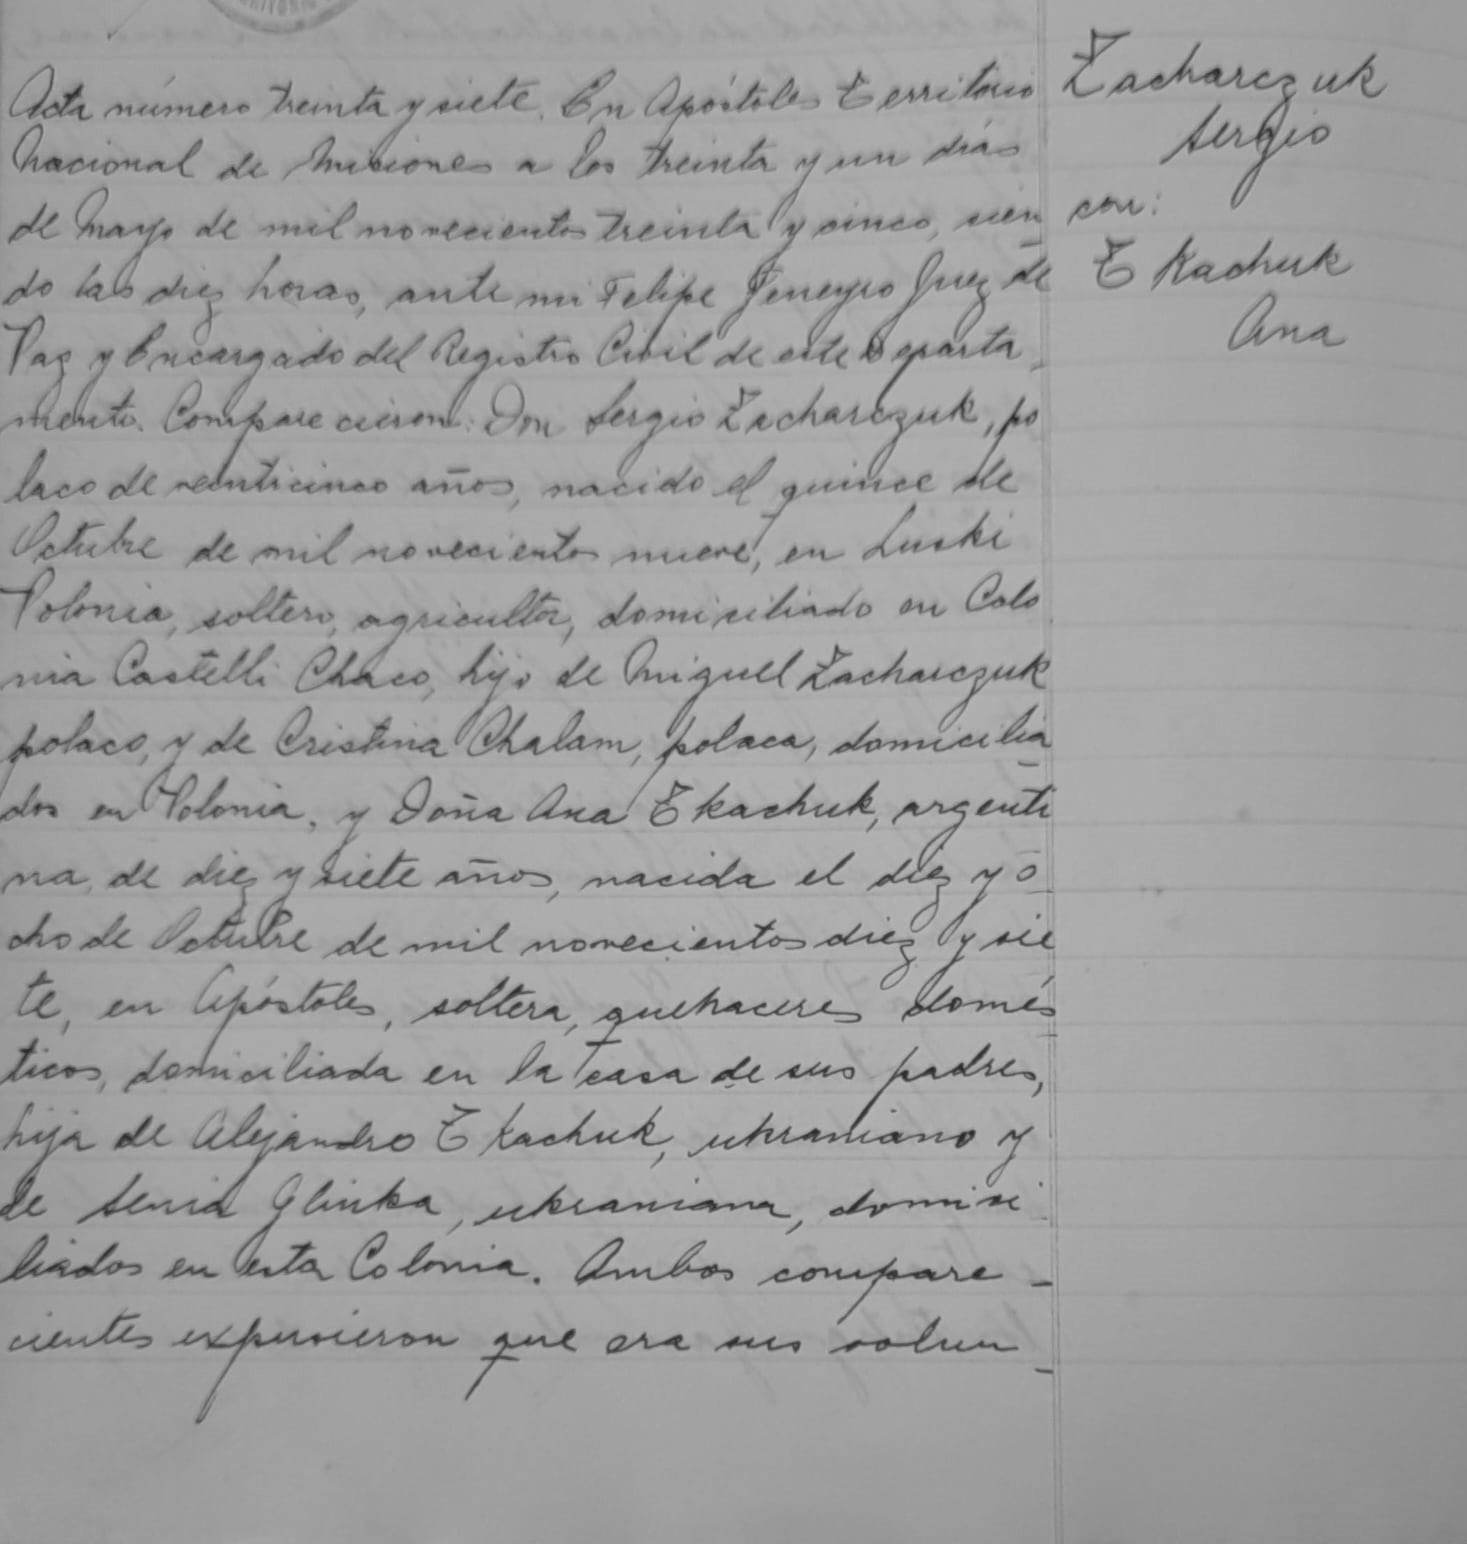 Acta número treinta y siete. En Apóstoles Territorio
Nacional de Misiones a los treinta y un días
de Mayo de mil novecientos treinta y cinco, sien
do las diez horas, ante mi Felipe Juez de
Paz y Encargado del Registro Civil de este Departa
mento. Comparecieron: Don Sergio Zacharczuk, po
laco de veinticinco años, nacido el quince de
Octubre de mil novecientos nueve, en Luski
Polonia, soltero, agricultor, domiciliado en Colo
nia Castelli Chaco, hijo de Miguel Zacharczuk
polaco, y de Cristina Chalam, polaca, domicilia
dos en Polonia, y Doña Ana Tkachuk, argenti
na, de diez y siete años, nacida el diez y o
cho de Octubre de mil novecientos diez y sie
te, en Apóstoles, soltera, quehaceres domés
ticos, domiciliada en la casa de sus padres,
hija de Alejandro Tkachuk, ukraniano y
de Senia Glinka, ukraniana, domici
liados en esta Colonia. Ambos compare-
cientes expusieron que era sus volun
Zacharczuk
Sergio
con:
Tkachuk
Ana